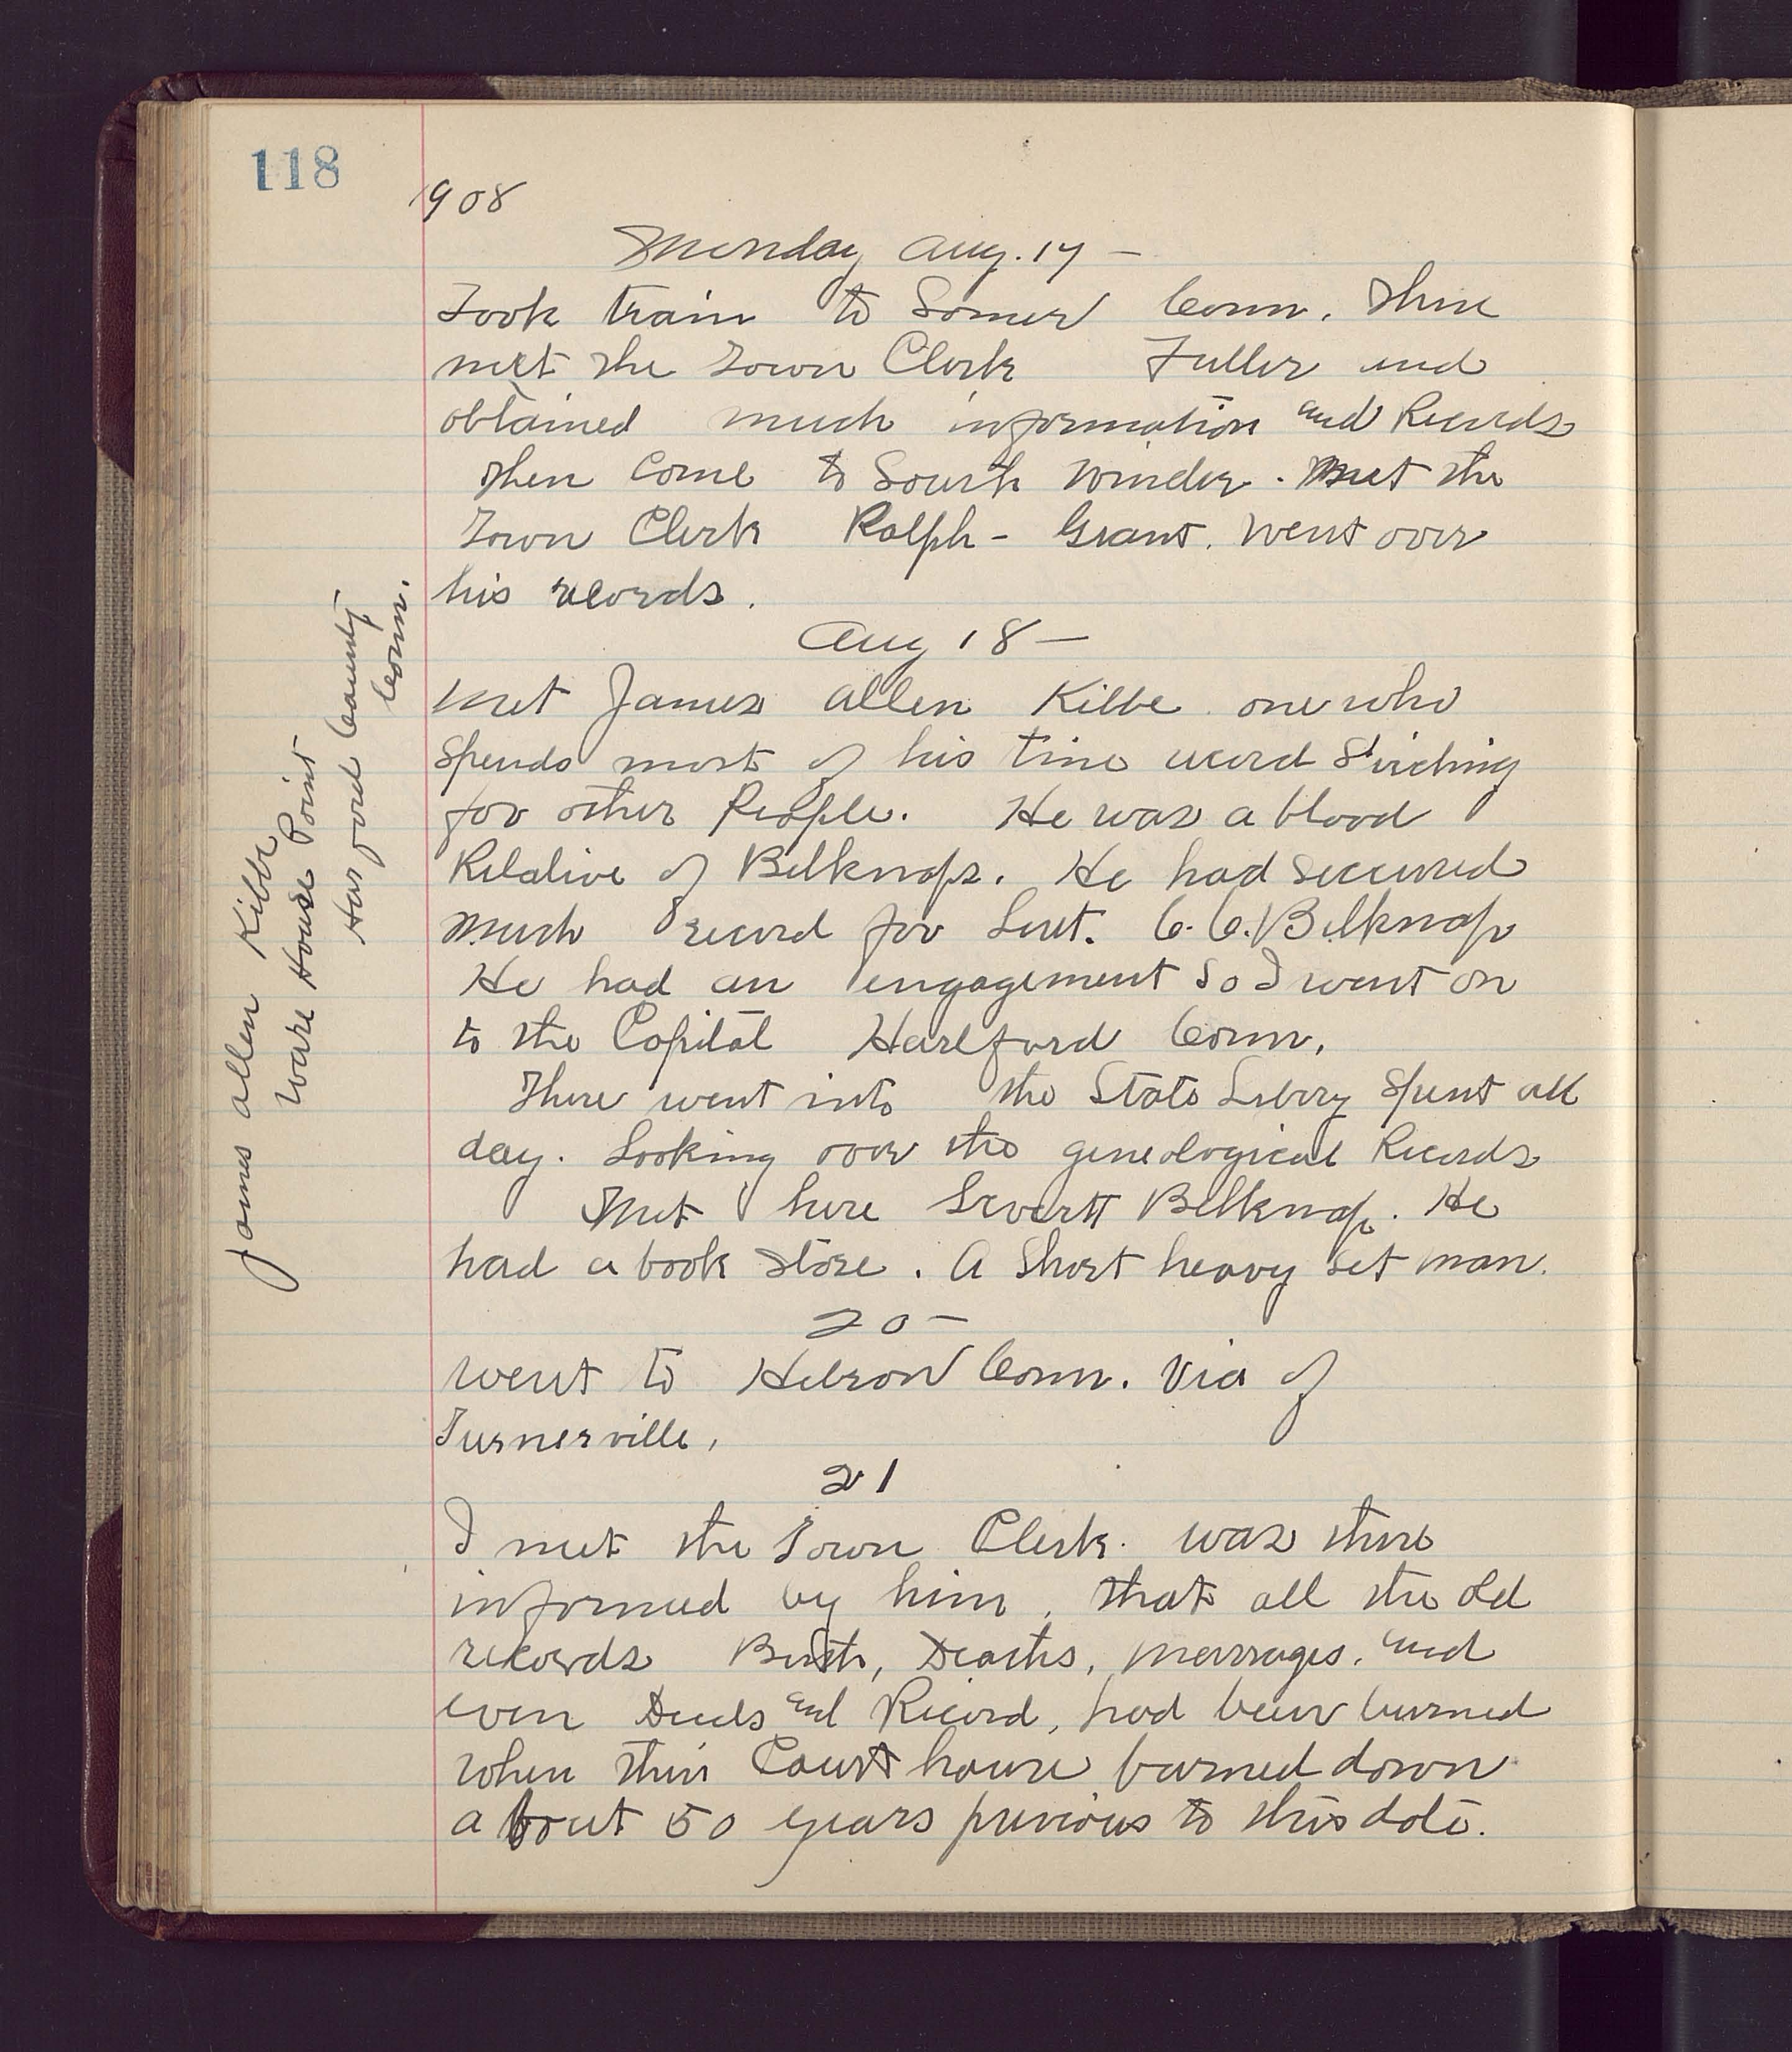 118
1908
Monday Aug. 17 -
Took train to Somer Conn. There
met the Town Clerk Fuller and
obtained much information and Records
Then come to South Windsr. Met the
Town Clerk Ralph - Grant. Went over
his records.
Aug 18 -
Met James Allen Kibbe one who
Spends most of his time record
for other People. He was a blood
Relative of Belknaps. He had seccured
Much record for Leut. C. C. Belknap
He had an engagement So I went on
to the Capital Hartford Conn.
There went into the State Librry Spent all
day. Looking over the geneological Records
Met here Levertt Belknap. He
had a book store. A Short heavy Set man.
20 -
Went to Hebron Conn. Via of
Turnerville,
21
I met the Town Clerk. was there
informed by him, that all the old
records Birth, Deaths, Marrages, and
even Deeds and Record, had been burned
when thier Court house burned down
about 50 years previous to this date.
James Allen Kibbe
Ware House Point
Harford County
Conn.